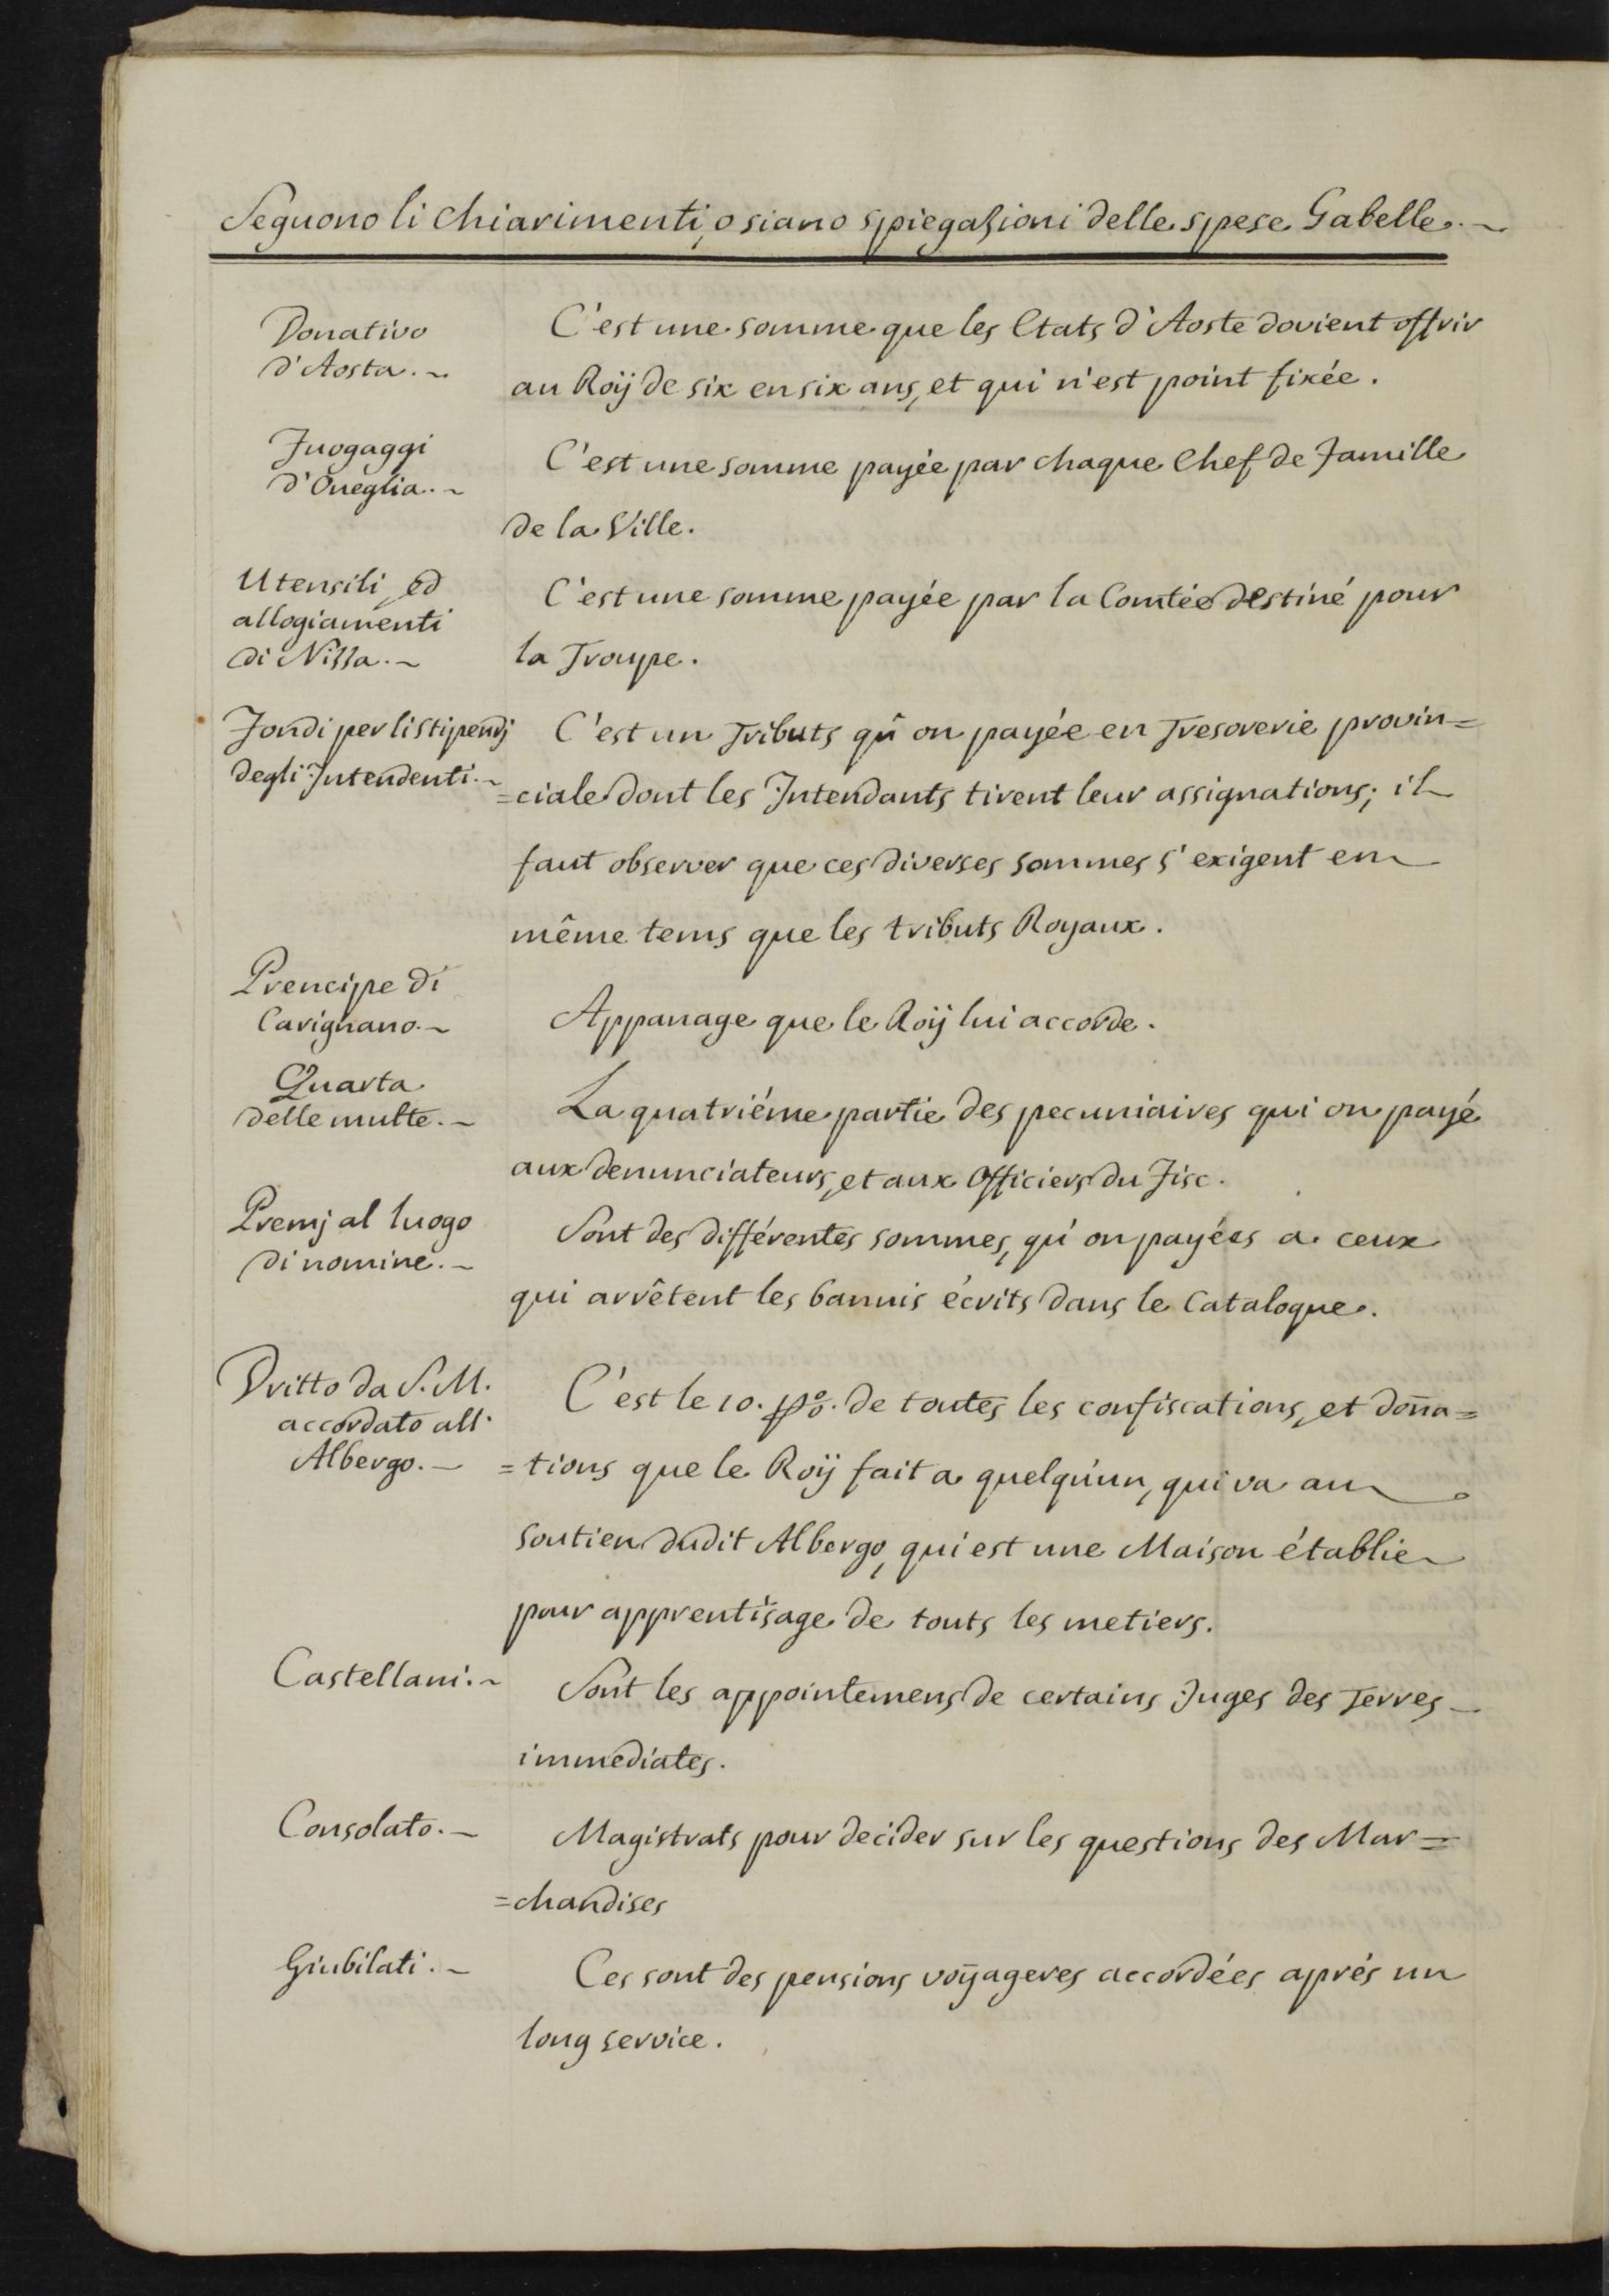 Seguono li chiarimenti, o siano spiegazioni delle spese Gabelle.
Donativo
d'Aosta.
C'est une somme que les Etats d'Aoste dovient offrir
au Roÿ de six en six ans, et qui n'est point fixée.
Fuogaggi
d'Oneglia.
C'est une somme payée par chaque Chef de Famille
de la Ville.
Utensili, ed
allogiamenti
di Nissa.
C'est une somme payée par la Comtée destiné pour
la Troupe.
Fondi per li stipendj
degli Intendenti.
C'est un Tributs qu'on payée en Tresorerie provin=
=ciale dont les Intendants tirent leur assignations; il
faut observer que ces diverses sommes s'exigent en
même tems que les tributs Royaux.
Prencipe di
Carignano.
Appanage que le Roÿ lui accorde.
Quarta
delle multe.
La quatriéme partie des pecuniaires qui on payé
aux denunciateurs, et aux Officiers du Fisc.
Premj al luogo
di nomine.
Sont des différentes sommes, qu'on payées a ceux
qui arrêtent les bannis écrits dans le Catalogue.
Dritto da S. M.
accordato all'
Albergo.
C'est le 10. p%. de toutes les confiscations, et don̄a=
=tions que le Roÿ fait a quelqu'un, qui va au
soutien dudit Albergo, qui est une Maison établie
pour apprentisage de touts les metiers.
Castellani.
Sont les appointemens de certains Juges des Terres
immediates.
Consolato.
Magistrats pour decider sur les questions des Mar=
=chandises
Giubilati.
Ces sont des pensions voÿageres accordées aprés un
long service.